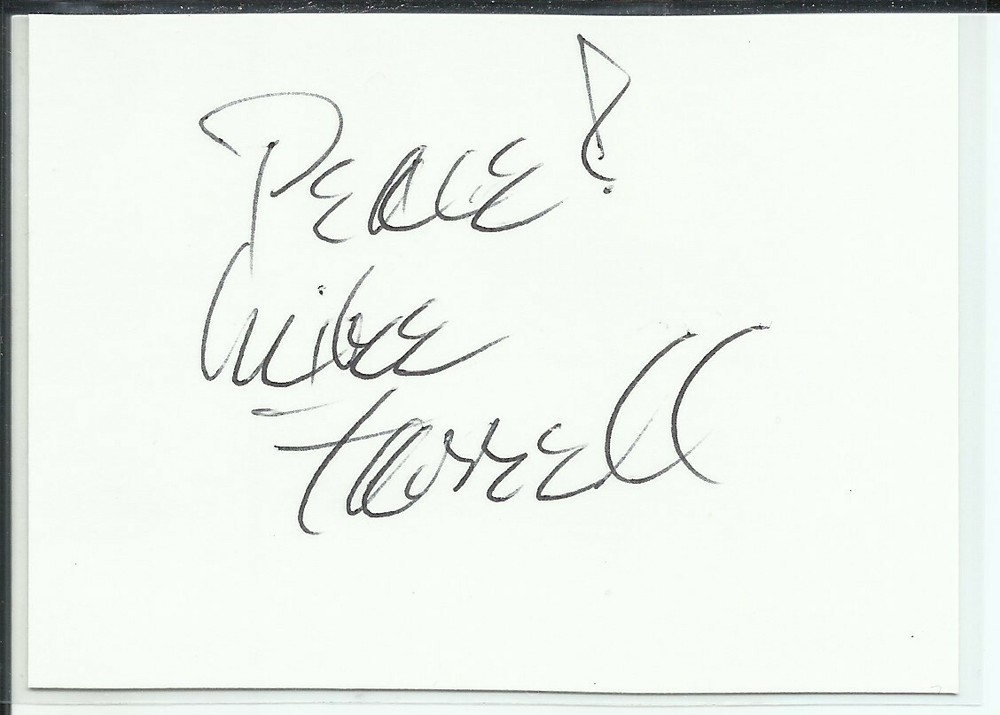 Peace!
Mike
Farrell